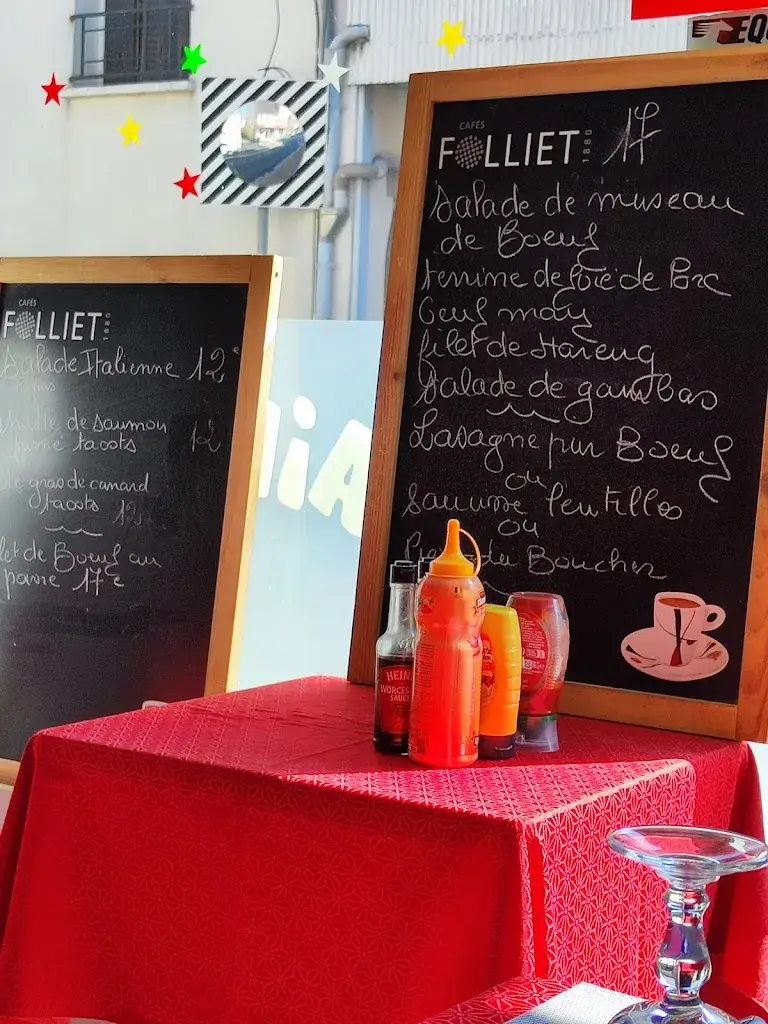 EQ
CAFÉS
FOLLIET 1880
Salade Italienne 12€
de saumon
tacots 12
gras de canard
tacots 12
de Boeuf au
poivre 17€
CAFÉS
FOLLIET 1880 17
Salade de museau
de Boeuf
terrine de foie de Porc
Oeuf may
filet de Hareng
Salade de gambas
Lasagne pur Boeuf
ou
saucisse lentilles
ou
du Boucher
HEIN
WORCES
SAUCE